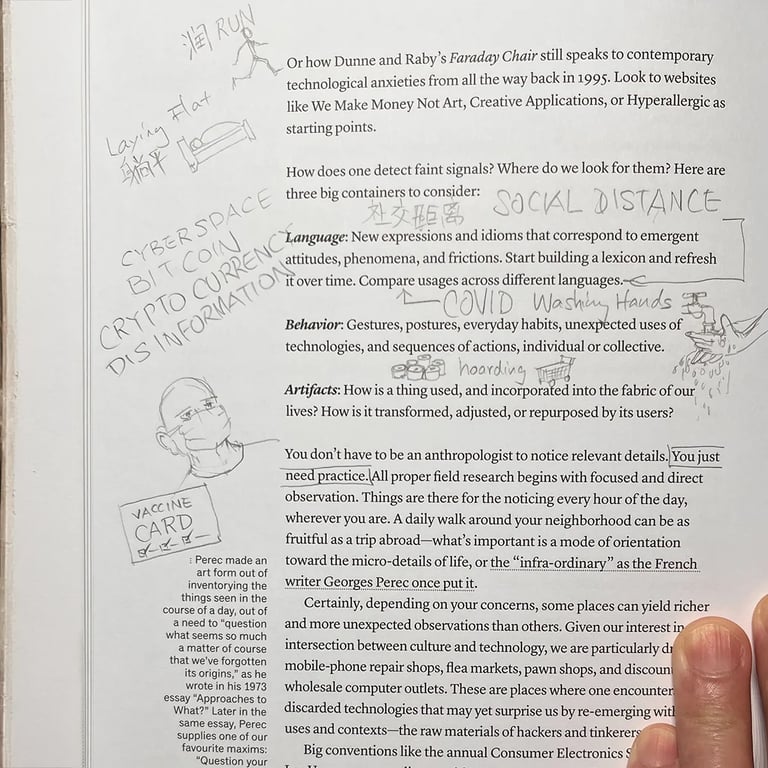 润 RUN
Laying Flat
躺平
CYBERSPACE
BIT COIN
CRYPTO CURRENCY
DIS INFORMATION
VACCINE
CARD
Or how Dunne and Raby's Faraday Chair still speaks to contemporary
technological anxieties from all the way back in 1995. Look to websites
like We Make Money Not Art, Creative Applications, or Hyperallergic as
starting points.
How does one detect faint signals? Where do we look for them? Here are
three big containers to consider:
社交距离 SOCIAL DISTANCE
Language: New expressions and idioms that correspond to emergent
attitudes, phenomena, and frictions. Start building a lexicon and refresh
it over time. Compare usages across different languages.
COVID Washing Hands
Behavior: Gestures, postures, everyday habits, unexpected uses of
technologies, and sequences of actions, individual or collective.
hoarding
Artifacts: How is a thing used, and incorporated into the fabric of our
lives? How is it transformed, adjusted, or repurposed by its users?
You don't have to be an anthropologist to notice relevant details. You just
need practice. All proper field research begins with focused and direct
observation. Things are there for the noticing every hour of the day,
wherever you are. A daily walk around your neighborhood can be as
fruitful as a trip abroad—what's important is a mode of orientation
toward the micro-details of life, or the "infra-ordinary" as the French
writer Georges Perec once put it.
Certainly, depending on your concerns, some places can yield richer
and more unexpected observations than others. Given our interest in
intersection between culture and technology, we are particularly
mobile-phone repair shops, flea markets, pawn shops, and
wholesale computer outlets. These are places where one
discarded technologies that may yet surprise us by re-emerging
uses and contexts—the raw materials of hackers and
Big conventions like the annual Consumer Electronics
: Perec made an
art form out of
inventorying the
things seen in the
course of a day, out of
a need to "question
what seems so much
a matter of course
that we've forgotten
its origins," as he
wrote in his 1973
essay "Approaches to
What?" Later in the
same essay, Perec
supplies one of our
favourite maxims:
"Question your